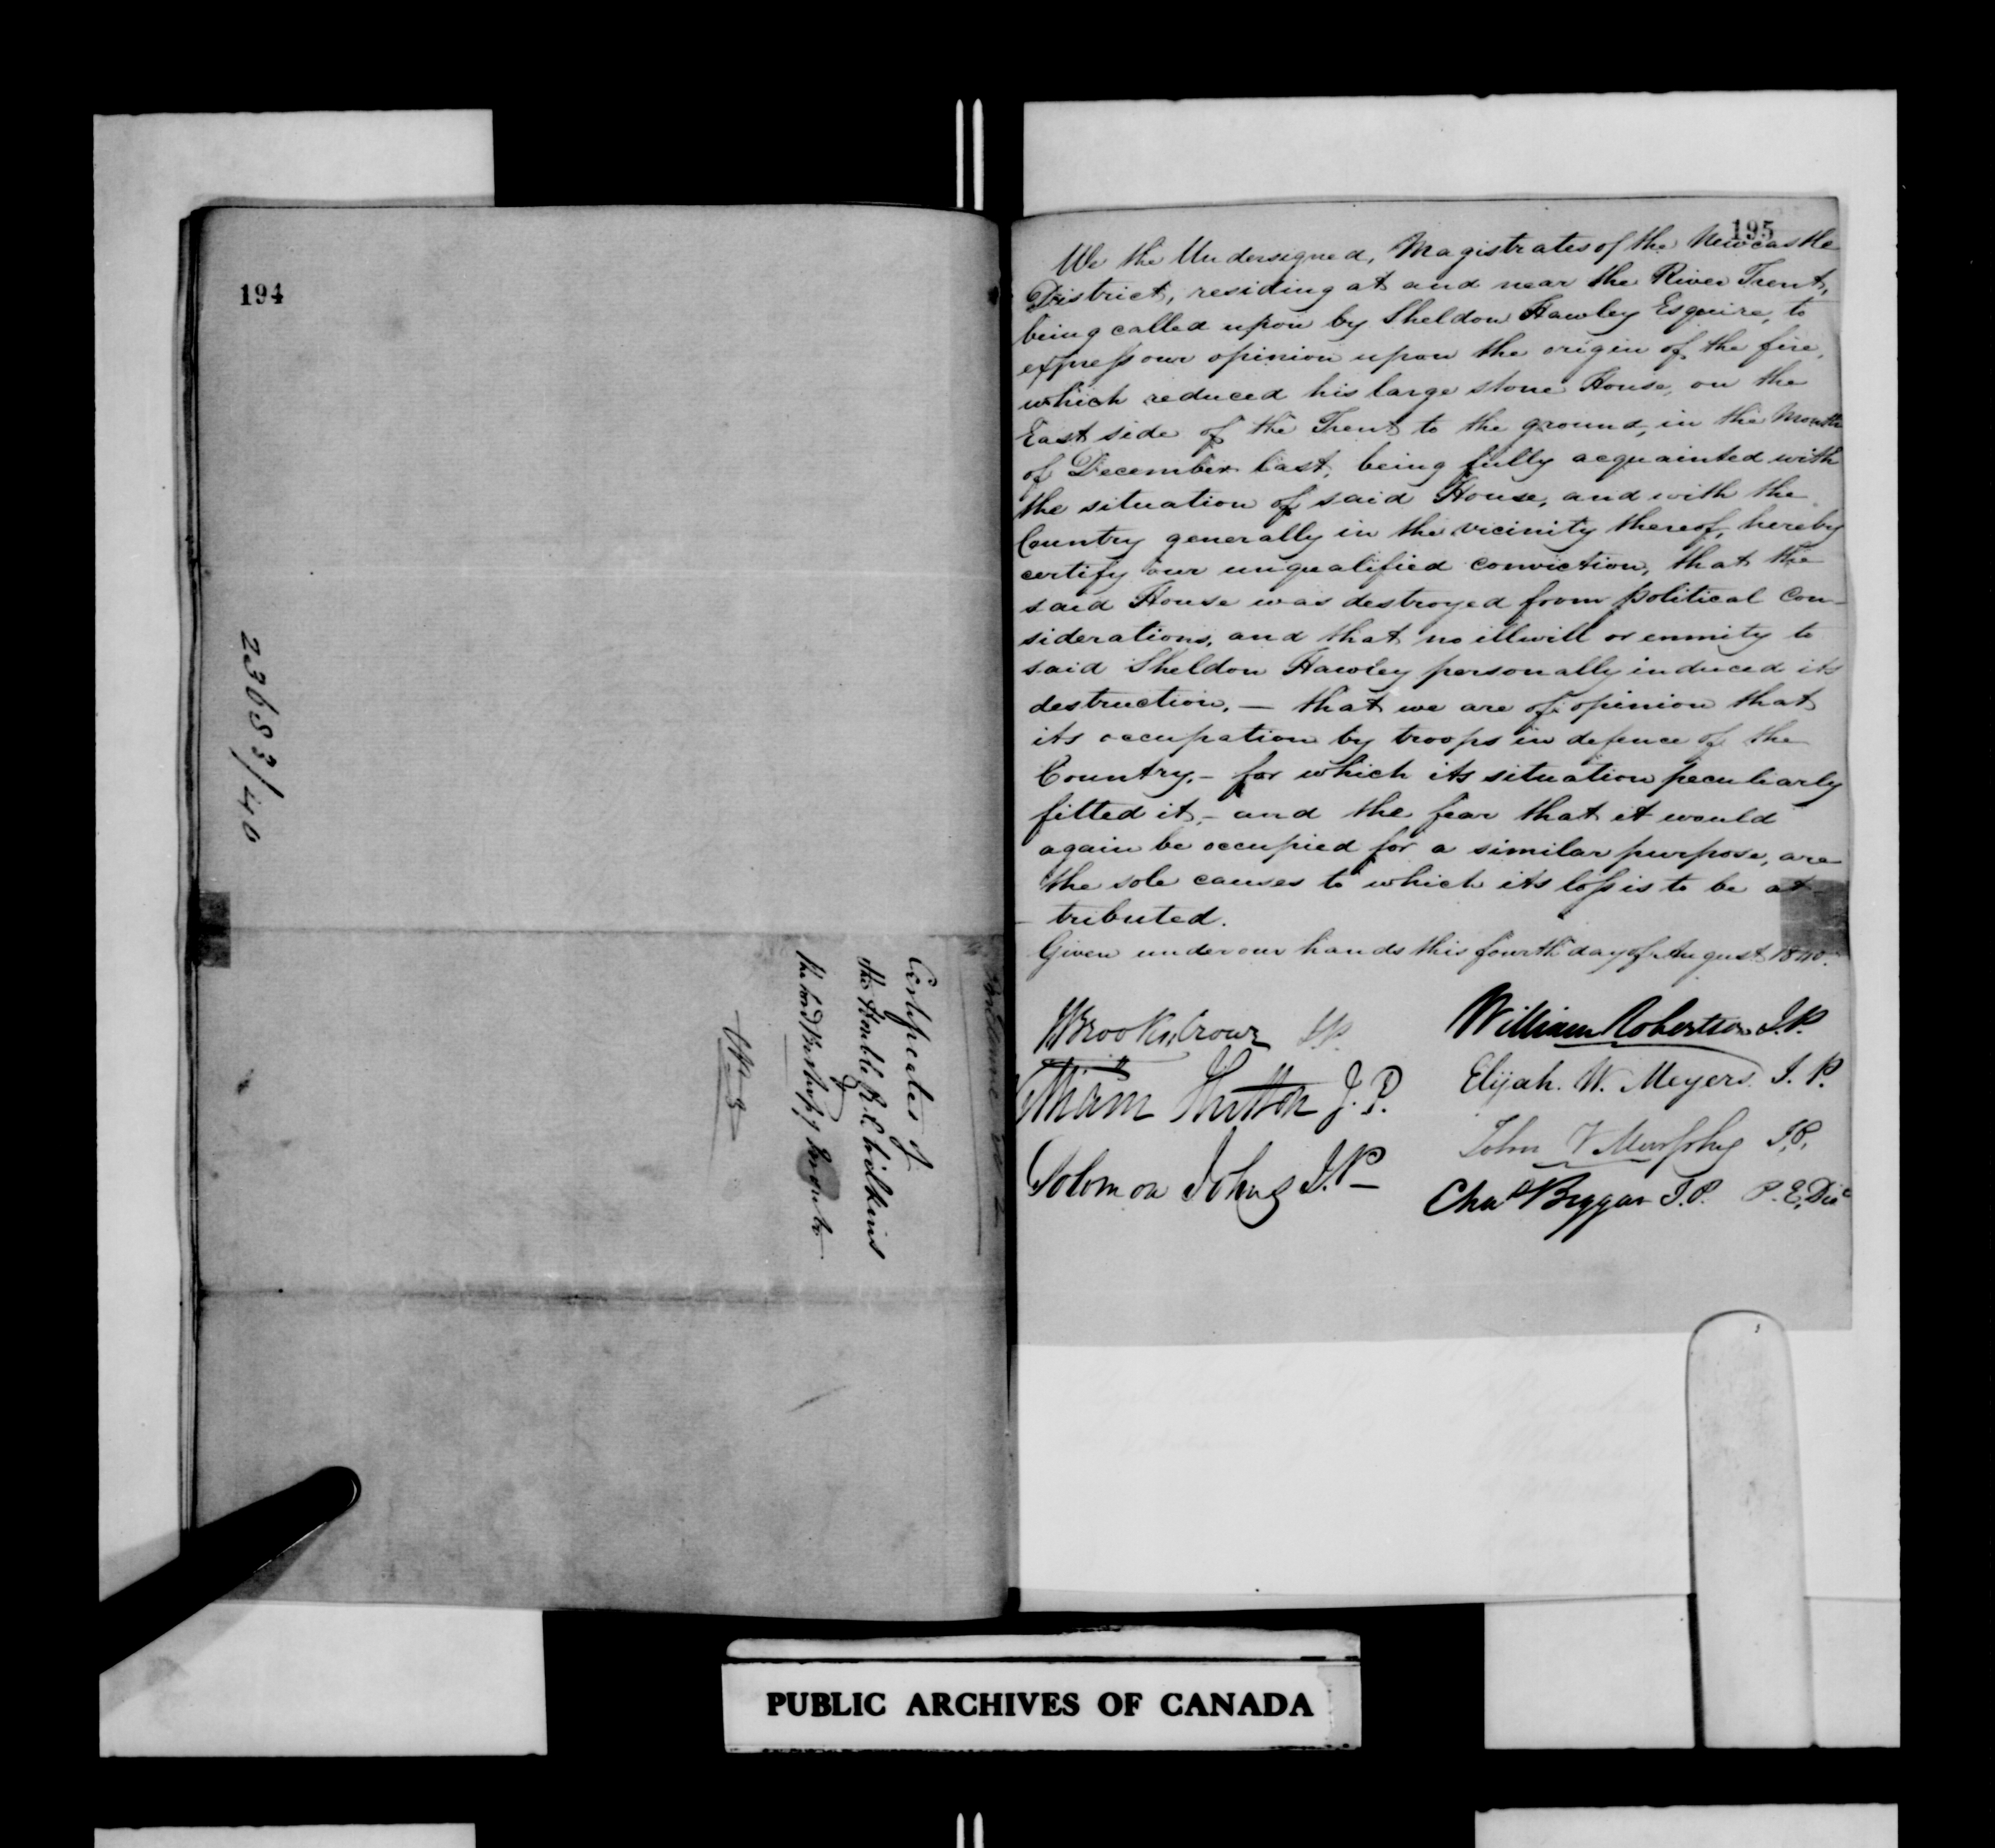 194
23653/40
Certificates of
the Honble R. C. Wilkins
&
the Lord Bishop of Toronto
195
We the Undersigned, Magistrates of the Newcastle
District, residing at and near the River Trent,
being called upon by Sheldon Hawley Esquire, to
express our opinion upon the origin of the fire,
which reduced his large stone House, on the
East side of the Trent to the ground, in the Month
of December last, being fully acquainted with
the situation of said House, and with the
Country generally in the vicinity thereof, hereby
certify our unqualified conviction, that the
said House was destroyed from political con-
siderations, and that no illwill or enmity to
said Sheldon Hawley personally induced its
destruction, — that we are of opinion that
its occupation by troops in defence of the
Country, – for which its situation peculiarly
fitted it, – and the fear that it would
again be occupied for a similar purpose, are
the sole causes to which its loss is to be at-
tributed.
Given under our hands this fourth day of August 1840.
William Robertson J.P.
Elijah. W. Meyers. J. P.
J. P.
Solomon Johns J.P.
John V Murphy J.P.
Chas Biggar J.P. P. E. Disc
PUBLIC ARCHIVES OF CANADA